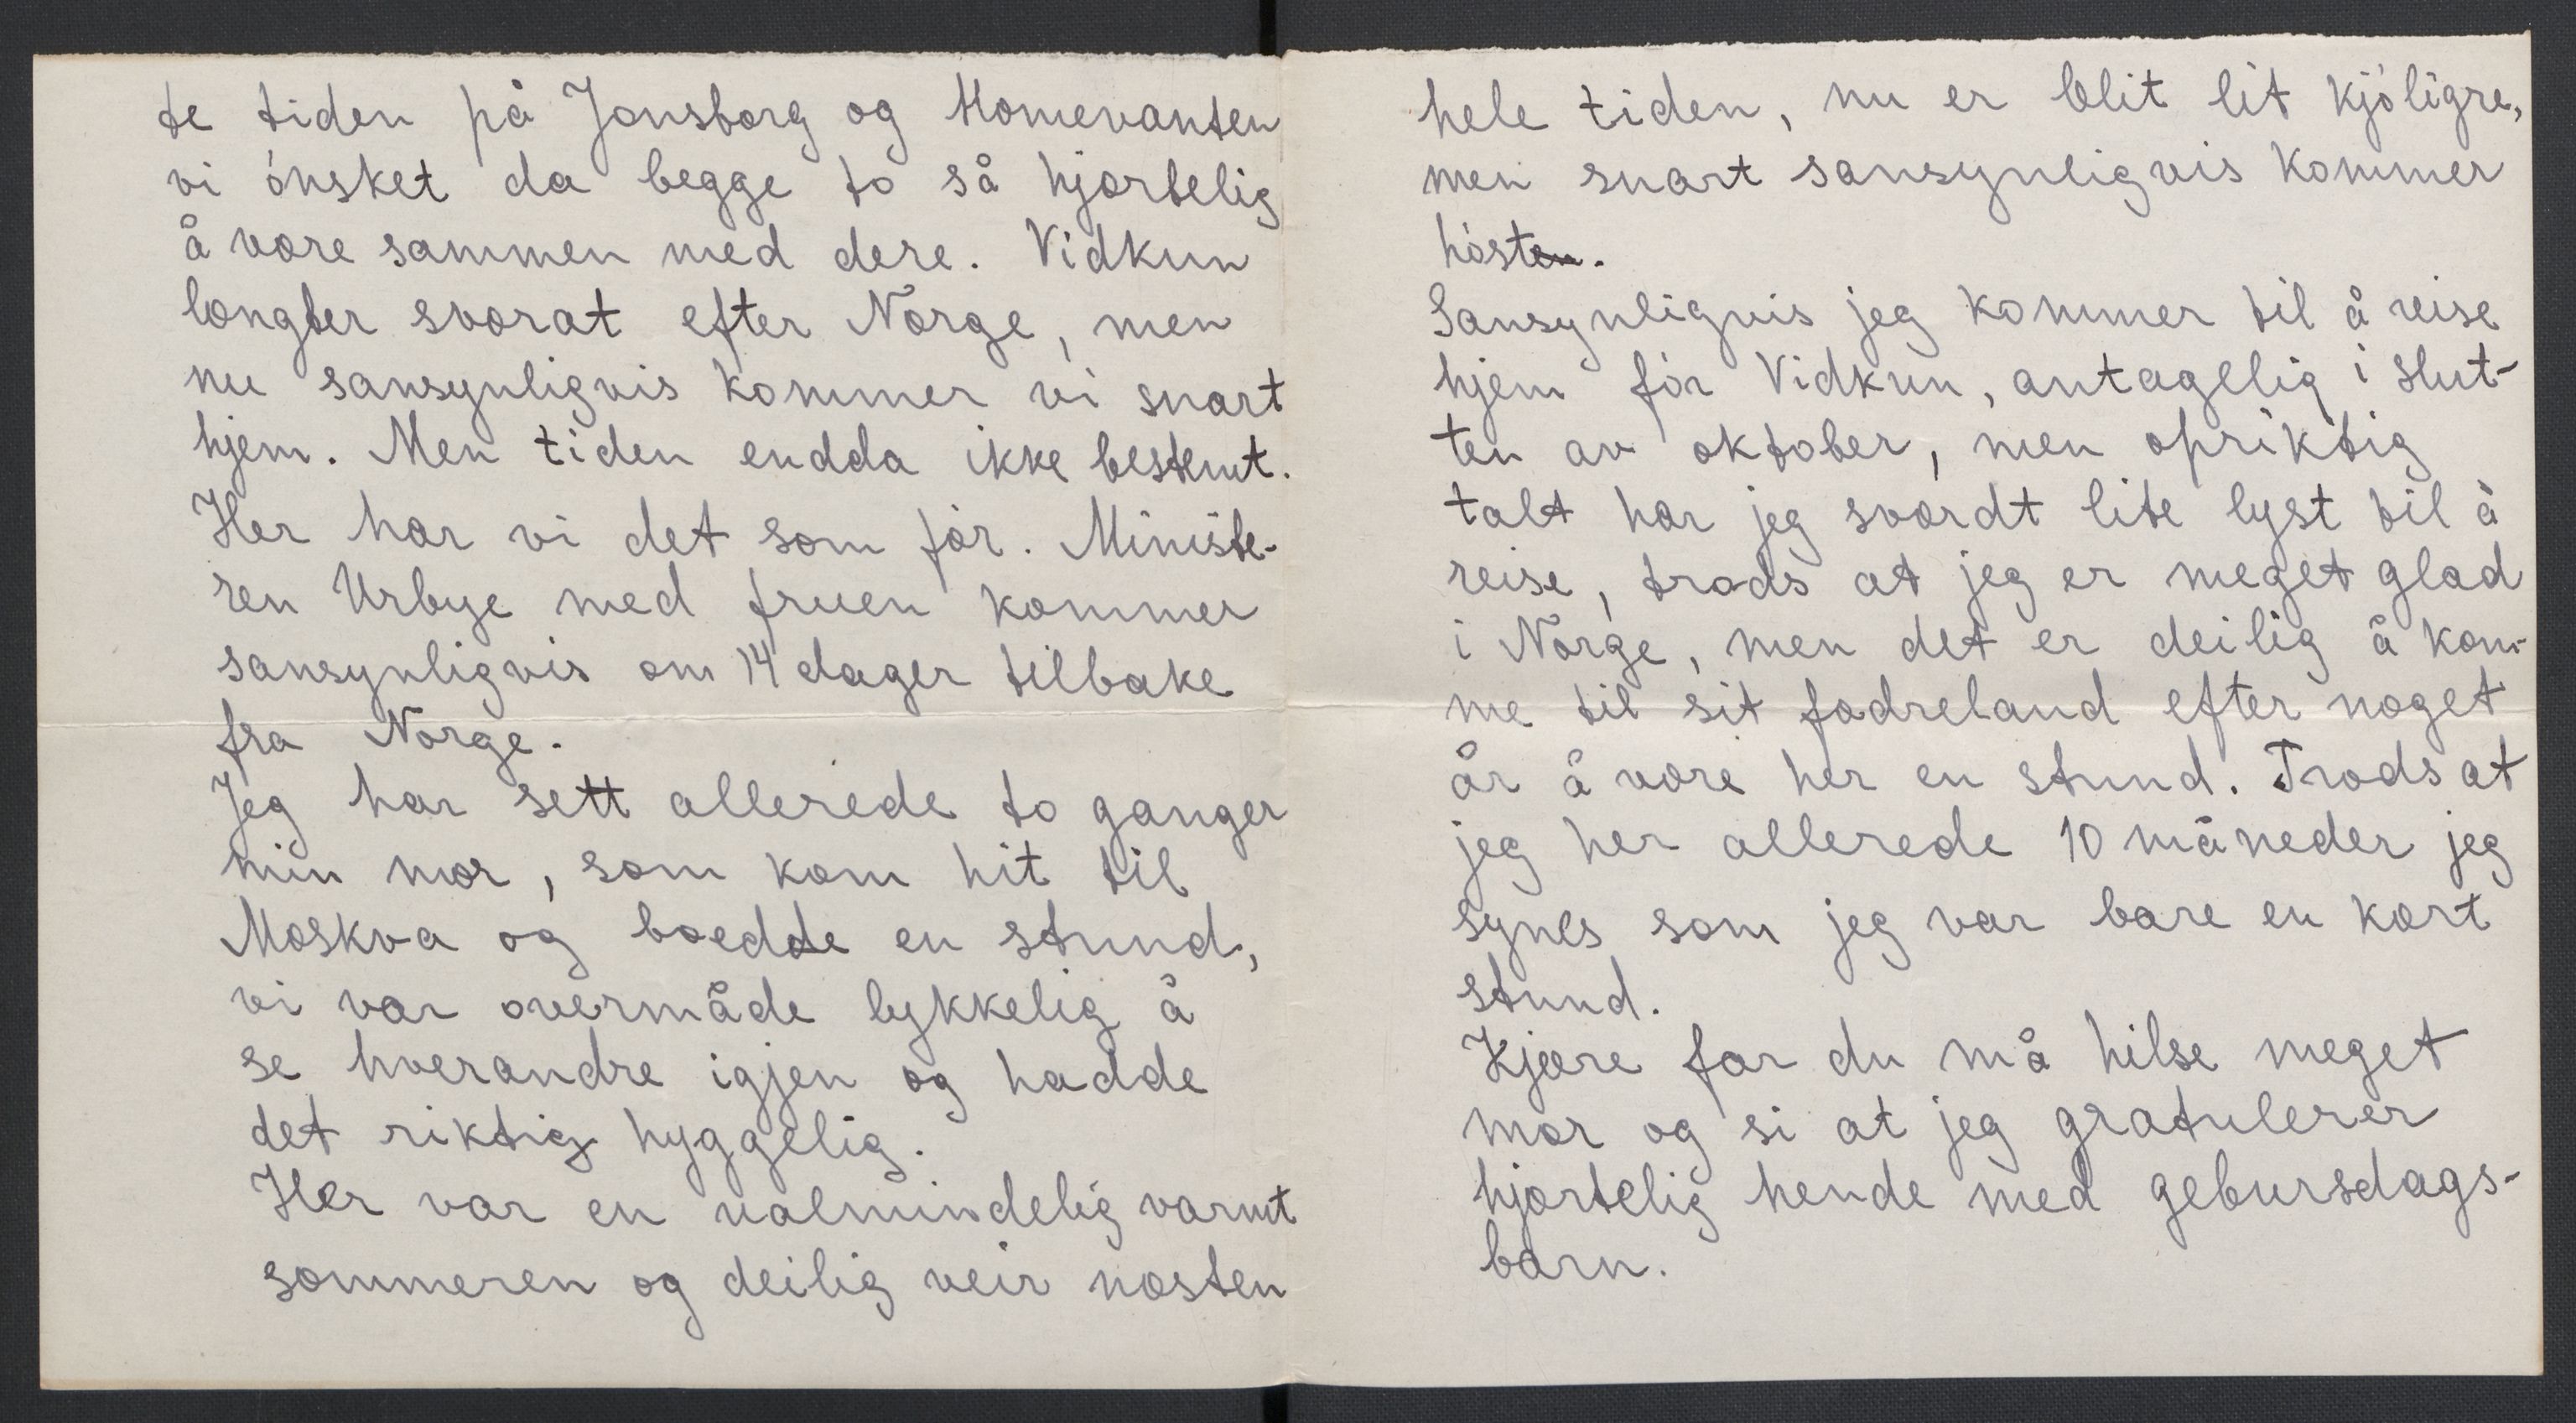 te tiden på Jonsborg og Homevanten
vi ónsket da begge to så hjærtelig
å være sammen med dere. Vidkun
længter sværat efter Norge, men
nu sansynligvis kommer vi snart
hjem. Men tiden endda ikke bestemt.
Her har vi det som fór. Ministe-
ren Urbye med fruen kommer
sansynligvis om 14 dager tilbake
fra Norge.
Jeg har sett allerede to ganger
min mor, som kom hit til
Moskva og boedde en stund,
vi var overmåde lykkelig å
se hverandre igjen og hadde
det riktig hyggelig.
Her var en ualmindelig varmt
sommeren og deilig veir næsten
hele tiden, nu er blit lit kjóligre,
men snart sansynligvis kommer
hósten.
Sansynligvis jeg kommer til å reise
hjem fór Vidkun, antagelig i slut-
ten av oktober, men opriktig
talt har jeg sværdt lite lyst til å
reise, trods at jeg er meget glad
i Norge, men det er deilig å kom-
me til sit fædreland efter noget
år å være her en stund. Trods at
jeg her allerede 10 måneder jeg
synes som jeg var bare en kort
stund.
Kjære far du må hilse meget
mor og si at jeg gratulerer
hjærtelig hende med gebursdags-
barn.